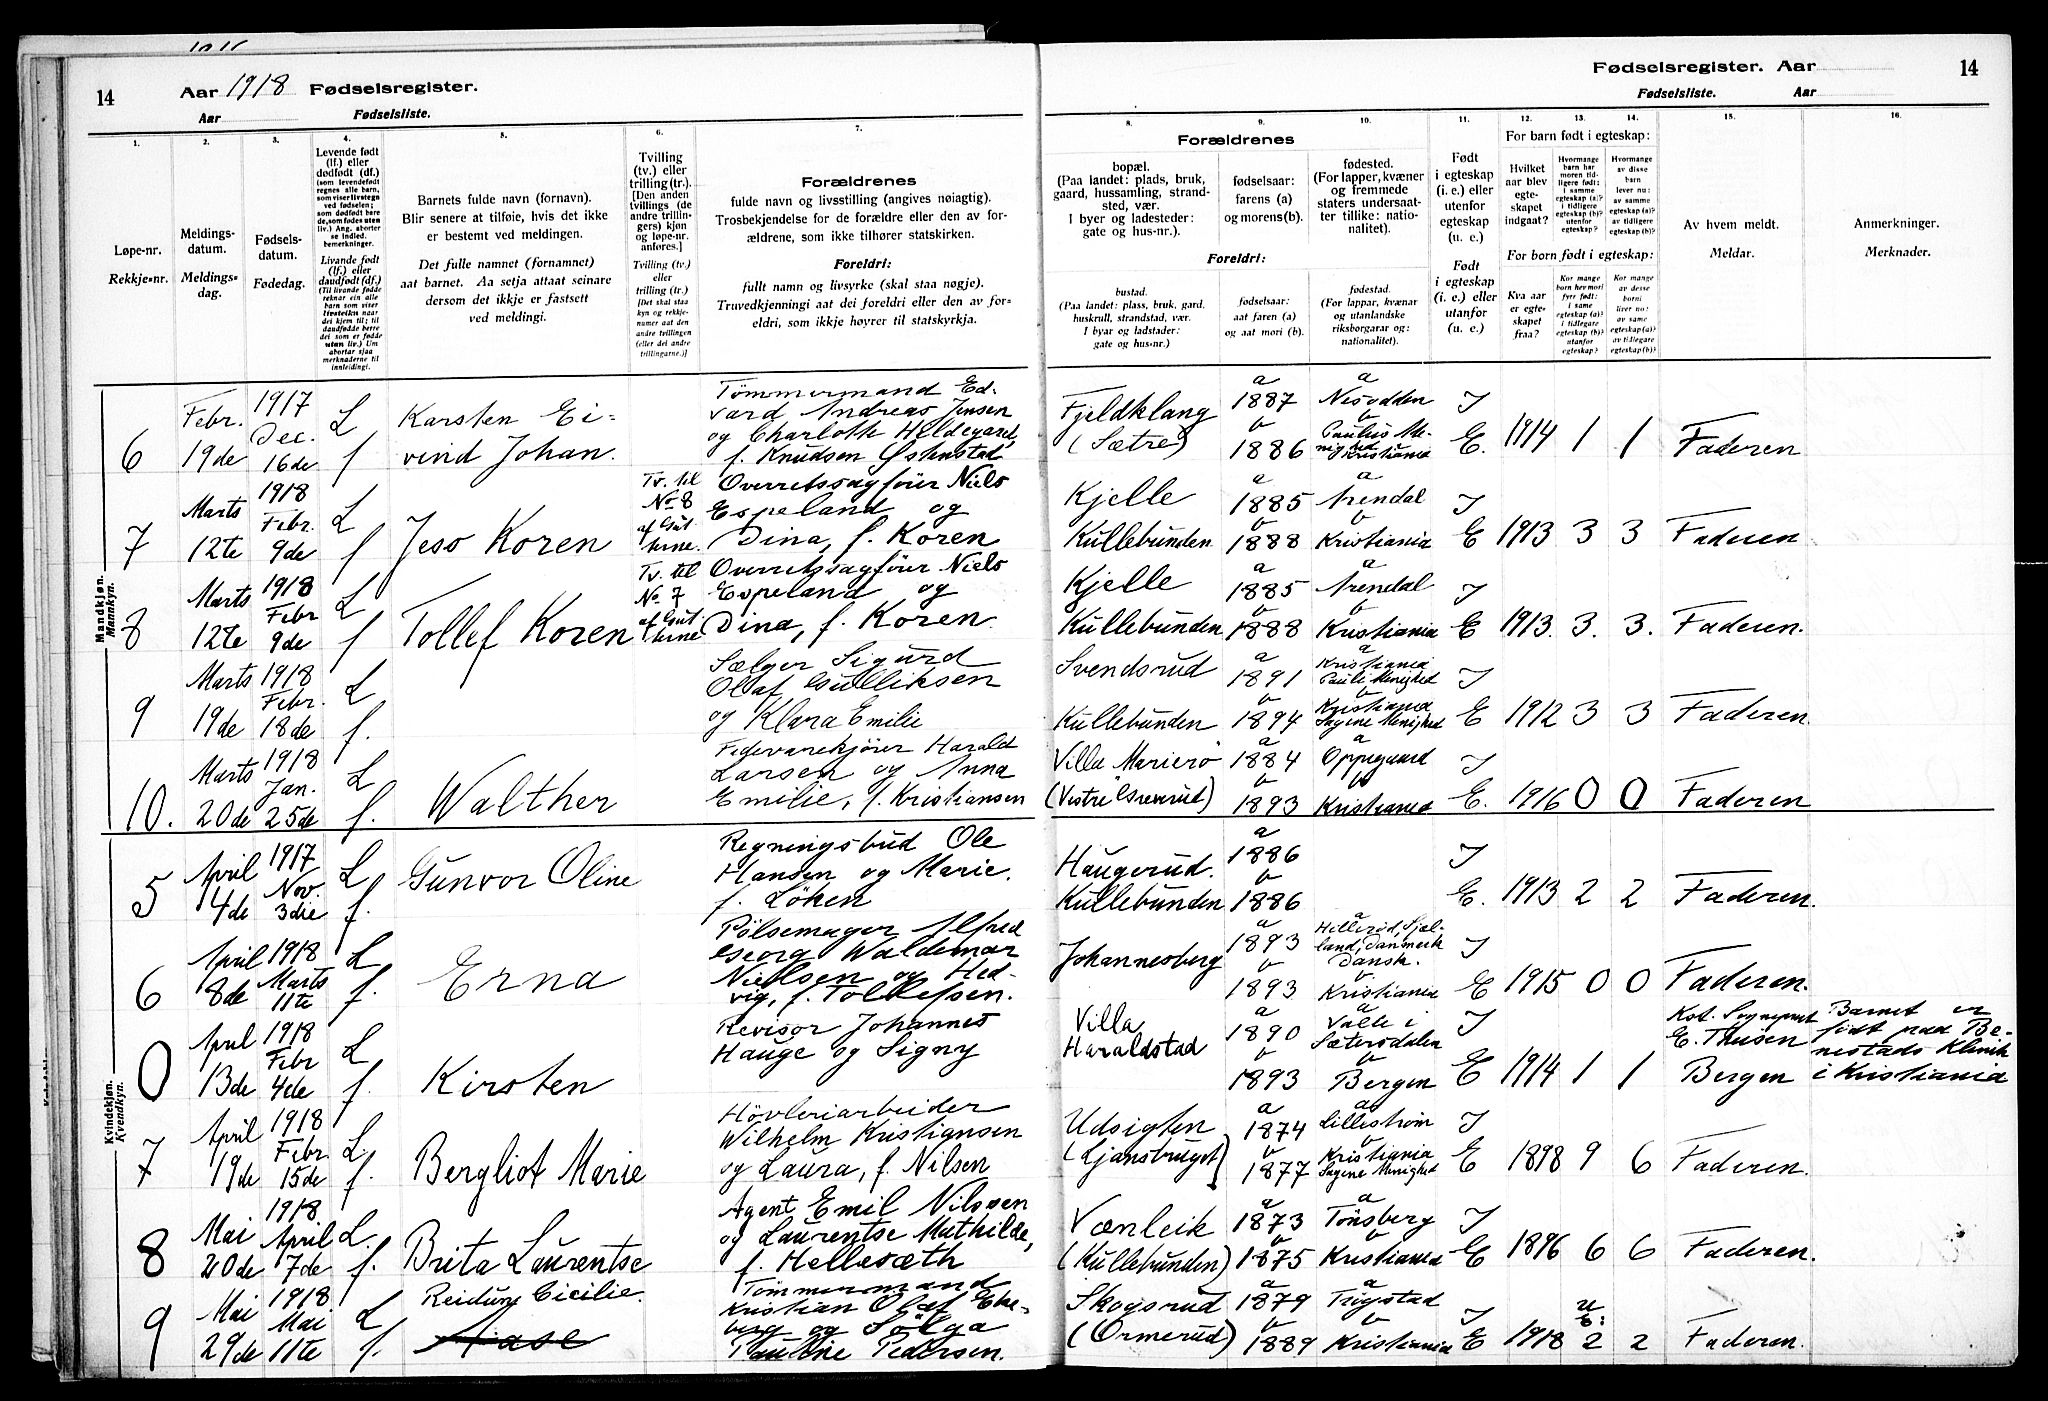 14
Aar 1918 Fødselsregister.
Aar
Fødselsliste.
1.
Løpe-nr.
Rekkje-nr.
2.
Meldings-
datum.
Meldings-
dag.
3.
Fødsels-
datum.
Fødedag.
4.
Levende født
(lf.) eller
dødfødt (df.)
(som levendefødt
regnes alle barn,
som viser livstegn
ved fødselen;
som dødfødt bare
de, som fødes uten
liv.) Ang. aborter
se indled.
bemerkninger.
Livande født
(lf.) eller
daudfødt (df.)
(Til livande fødde
reknar ein alle
born som viser
livsteikn naar
dei kjem til; til
daudfødde berre
dei som er fødde
utan liv.) Um
abortar sjaa
merknaderne til
innleidingi.
5.
Barnets fulde navn (fornavn).
Blir senere at tilføie, hvis det ikke
er bestemt ved meldingen.
Det fulle namnet (fornamnet)
aat barnet. Aa setja attaat seinare
dersom det ikkje er fastsett
ved meldingi.
6.
Tvilling
(tv.) eller
trilling (tr.).
[Den anden
tvillings (de
andre trillin-
gers) kjøn
og løpe-nr.
anføres.]
Tvilling (tv.)
eller
trilling (tr.)
[Det skal staa
kyn og rekkje-
numer aat den
andre tvillingen
(eller dei andre
trillingarne.)]
7.
Forældrenes
fulde navn og livsstilling (angives nøiagtig).
Trosbekjendelse for de forældre eller den av for-
ældrene, som ikke tilhører statskirken.
Foreldri:
fullt namn og livsyrke (skal staa nøgje).
Truvedkjenningi aat dei foreldri eller den av for-
eldri, som ikkje høyrer til statskyrkja.
Mandkjøn.
Mannkyn.
6
Febr.
19de
1917
Dec.
16de
L
f
Karsten Ei-
vind Johan.
Tömmermand Ed-
vard Andreas Jensen
og Charloth Hildegard,
f. Knudsen
7
Marts
12te
1918
Febr.
9de
L
f
Jess Koren
Tv. til
No 8
af Gut
terne.
Overretssagförer Niels
Espeland og
Dina, f. Koren
8
Marts
12te
1918
Febr
9de
L
f
Tollef Koren
Tv. til
No 7
af Gut
terne
Overretssagförer Niels
Espeland og
Dina, f. Koren.
9
Marts
19de
1918
Febr.
18de
L
f.
Sælger Sigurd
Olaf Gulliksen
og Klara Emilie
10.
Marts
20de
1918
Jan.
25de
L
f.
Walther
Fedevarekjörer Harald
Larsen og Anna
Emilie, f. Kristiansen
Kvindekjøn.
Kvendkyn.
5
April
4de
1917
Nov.
3die
L
f.
Gunvor Oline
Regningsbud Ole
Hansen og Marie.
f. Löken
6
April
8de
1918
Marts
11te
L
f.
Erna
Pölsemager Alfred
Georg Waldemar
Nielsen og Hed-
vig, f. Tollefsen.
0
April
13de
1918
Febr
4de
L
f.
Kirsten
Revisor Johannes
Hauge og Signy
7
April
19de
1918
Febr.
15de
L
f.
Bergliot Marie
Hövleriarbeider
Wilhelm Kristiansen
og Laura, f. Nilsen
8
Mai
20de
1918
April
7de
L.
f.
Brita Laurentse
Agent Emil Nilssen
og Laurentse Mathilde,
f. Hellesæth
9
Mai
29de
1918
Mai
11te
L
f.
Reidun Cicilie.
Aase
Tömmermand
Kristian Olaf Eke-
berg og Sölga
Pauline Pedersen.
Fødselsregister. Aar
14
Fødselsliste. Aar
8.
Forældrenes
bopæl.
(Paa landet: plads, bruk,
gaard, hussamling, strand-
sted, vær.
I byer og ladesteder:
gate og hus-nr.).
Foreldri:
bustad.
(Paa landet: plass, bruk, gard,
huskrull, strandstad, vær.
I byar og ladstader:
gate og hus-nr.)
9.
fødselsaar:
farens (a)
og morens(b).
fødselsaar:
aat faren (a)
og aat mori (b).
10.
fødested.
(For lapper, kvæner
og fremmede
staters undersaat-
ter tillike: natio-
nalitet).
fødestad.
(For lappar, kvænar
og utanlandske
riksborgarar og:
nationalitet).
11.
Født
i egteskap
(i. e.) eller
utenfor
egteskap
(u. e.)
Født
i egteskap
(i. e.) eller
utanfor
(u. e.)
12. 13. 14.
For barn født i egteskap:
Hvilket
aar blev
egte-
skapet
indgaat?
Hvormange
barn har
moren tid-
ligere født:
i samme
egteskap (a)?
i tidligere
egteskap (b)?
utenfor
egteskap?
Hvormange
av disse
barn
lever nu:
av samme
egteskap (a)?
av tidligere
egteskap (b)?
For born født i egteskap:
Kva aar
er egte-
skapet
fraa?
Kor mange
born hev mori
fyrr født:
i same
egteskap (a)?
i tidlegare
egteskap (b)?
utanfor
egteskap?
Kor mange
av desse
borni
liver no:
av same
egteskap (a)?
av tidlegare
egteskap (b)?
15.
Av hvem meldt.
Meldar.
16.
Anmerkninger.
Merknader.
Fjeldklang
(Sætre)
a
1887
b
1886
a
Nesodden
b
Paulus Me-
nighed
Kristiania
I
E.
1914 1 1 Faderen
Kjelle
Kullebunden
a
1885
b
1888
a
Arendal
b
Kristiania
I
E
1913 3 3 Faderen.
Kjelle
Kullebunden
a
1885
b
1888
a
Arendal
b
Kristiania
I
E
1913. 3. 3. Faderen.
Svendsrud
Kullebunden
a
1891
b
1894
a
Kristiania
Pauli Menighed
b
Kristiania
Sagene Menighed
I
E
1912 3 3 Faderen.
Villa Marierö
(Vestre Greverud)
a
1884
b
1893
a
Oppegaard
b
Kristiania
I
E.
1916 0 0 Faderen
Haugerud.
Kullebunden
a
1886
b
1886
I
E.
1913 2 2 Faderen.
Johannesberg
a
1893
b
1893
a
Hilleröd, Sjæl-
land, Danmark
Dansk.
b
Kristiania
I
E
1915 0 0 Faderen.
Villa
Haraldstad
a
1890
b
1893
a
Valle i
Sætersdalen
b
Bergen
I
E
1914 1 1
Kst. Sognepræst
E. Thusen
Bergen
Barnet er
født paa Be-
nestads Klinik
i Kristiania
Udsigten
(Ljansbruget)
a
1874
b
1877
a
Lilleström
b
Kristiania
Sagene Menighed
I
E
1898 9 6 Faderen.
Vænleik
(Kullebunden)
a
1873
b
1875
a
Tönsberg
b
Kristiania
I
E
1896 6 6 Faderen.
Skogsrud
(Ormerud)
a
1879
b
1889
a
Trögstad
b
Kristiania
I
E
1918
u
E:
2 2 Faderen.